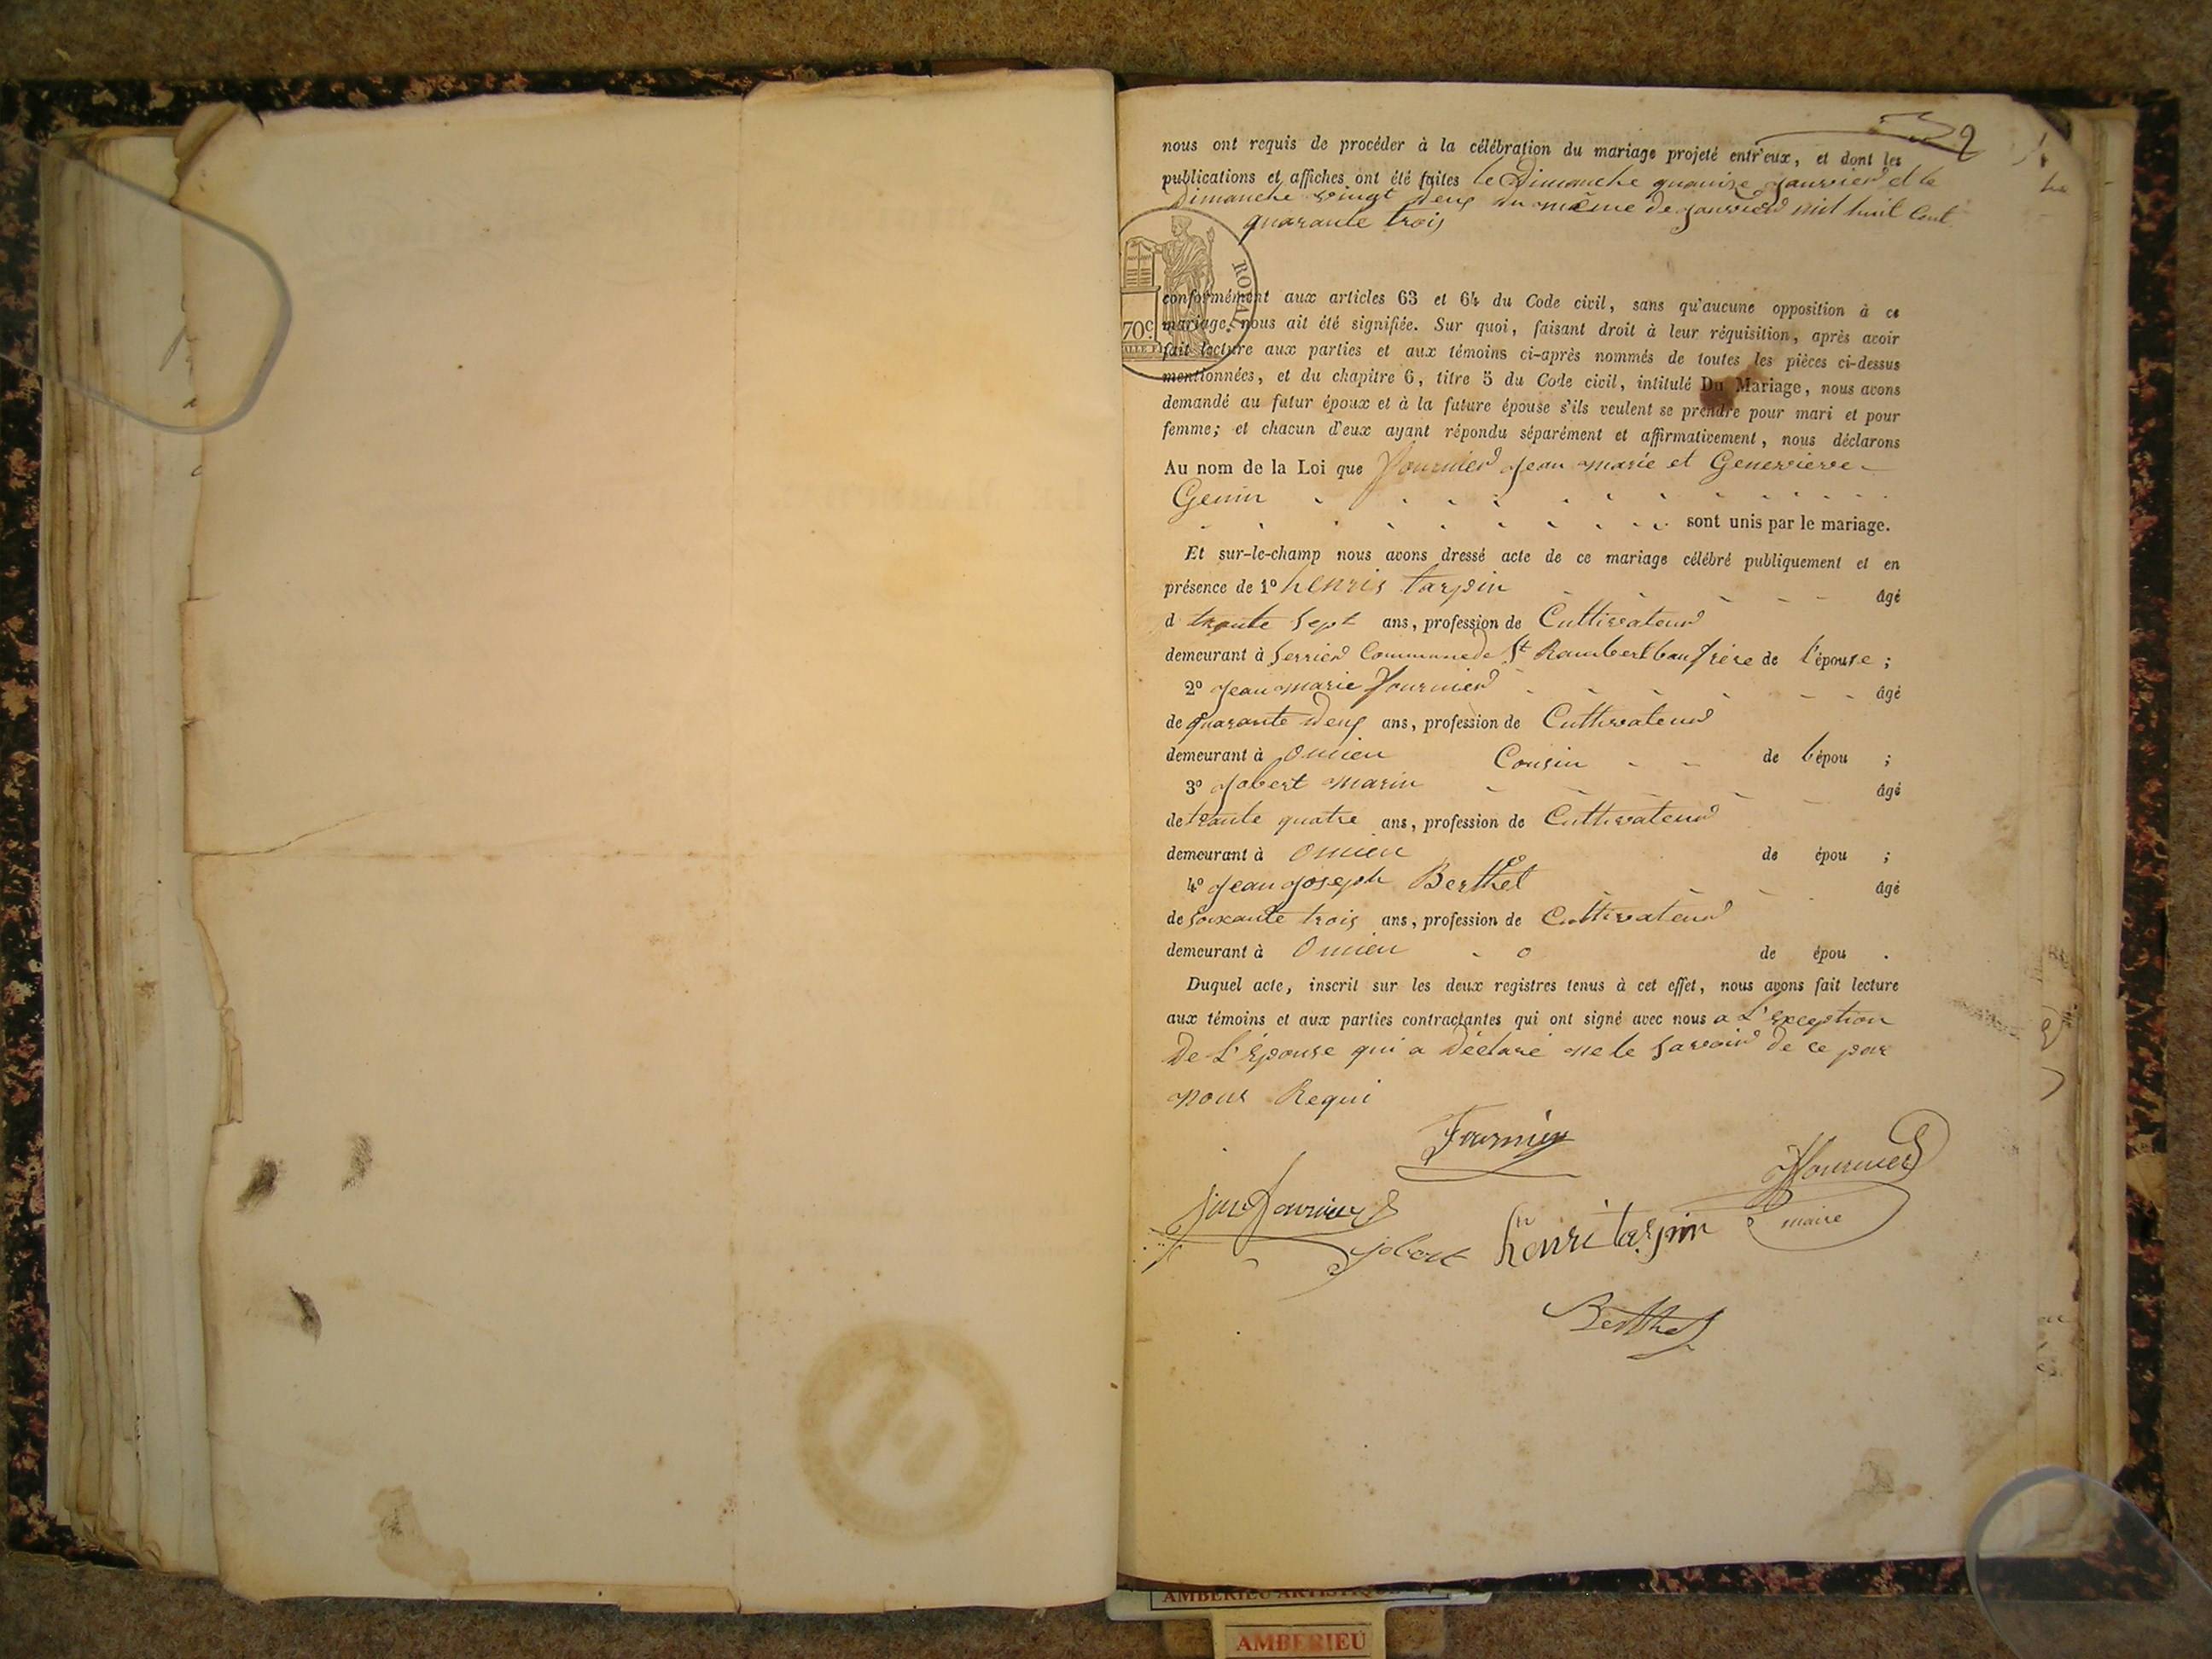 nous ont requis de procéder à la célébration du mariage projeté entr'eux, et dont les
publications et affiches ont été faites le Dimanche quainze janvier et le
Dimanche vingt deux du même de janvier mil huit Cent
quarante trois
ROYAL
70c
conformément aux articles 63 et 64 du Code civil, sans qu'aucune opposition à ce
mariage nous ait été signifiée. Sur quoi, faisant droit à leur réquisition, après avoir
fait lecture aux parties et aux témoins ci-après nommés de toutes les pièces ci-dessus
mentionnées, et du chapitre 6, titre 5 du Code civil, intitulé Du Mariage, nous avons
demandé au futur époux et à la future épouse s'ils veulent se prendre pour mari et pour
femme; et chacun d'eux ayant répondu séparément et affirmativement, nous déclarons
Au nom de la Loi que Fournier Jean marie et Genevieve
Genin
sont unis par le mariage.
Et sur-le-champ nous avons dressé acte de ce mariage célébré publiquement et en
présence de 1º henris tarpin âgé
d trante sept ans, profession de Cultivateur
demeurant à Serrier Commune de St Rambert baufrère de l'épouse ;
2º Jean marie Fournier âgé
de quarante deux ans, profession de Cultivateur
demeurant à Oncieu Cousin de l'épou ;
3º Jobert marin âgé
de trante quatre ans, profession de Cultivateur
demeurant à Oncieu de épou ;
4º Jean Joseph Berthet âgé
de Soixante trois ans, profession de Cultivateur
demeurant à Oncieu de épou .
Duquel acte, inscrit sur les deux registres tenus à cet effet, nous avons fait lecture
aux témoins et aux parties contractantes qui ont signé avec nous a L'exception
De L'épouse qui a Déclaré ne le Savoir de ce par
nous Requi
Fournier
Fournier
Fournier
jobert henri tarpin maire
Berthet
AMBERIEU ARTISTIQ
AMBERIEU